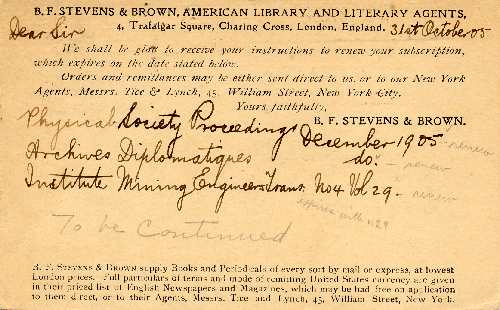 B. F. STEVENS & BROWN, AMERICAN LIBRARY AND LITERARY AGENTS,
4, Trafalgar Square, Charing Cross, London, England, 31st October 05
Dear Sir
We shall be glad to receive your instructions to renew your subscription,
which expires on the date stated below.
Orders and remittances may be either sent direct to us, or to our New York
Agents, Messrs. Tice & Lynch, 45, William Street, New York City.
Yours faithfully,
B. F. STEVENS & BROWN.
Physical Society Proceedings December 1905 - renew
Archives Diplomatiques do: - renew
Institute Mining Engineers Trans. No 4 Vol 29 - renew
expires with v29
To be Continued
B. F. STEVENS & BROWN supply Books and Periodicals of every sort by mail or express, at lowest
London prices. Full particulars of terms and mode of remitting United States currency are given
in their priced list of English Newspapers and Magazines, which may be had free on application
to them direct, or to their Agents, Messrs. Tice and Lynch, 45, William Street, New York.